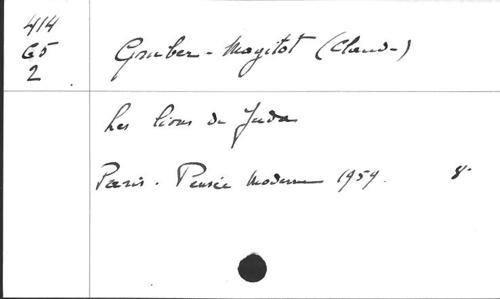 414
G5
2
Gruber-Magitot (Claude)
Les lions de Juda
Paris. Pensée Moderne 1959. 8°